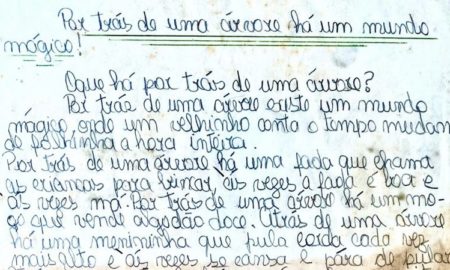 Por trás de uma árvore há um mundo
mágico!
Oque há por trás de uma árvore?
Por trás de uma árvore existe um mundo
mágico, onde um velhinho conta o tempo mudan
de folhinha a hora inteira.
Por trás de uma árvore há uma fada que chama
as crianças para brincar, às vezes a fada é boa e
às vezes má. Por trás de uma árvore há um mo-
ço que vende algodão doce. Atrás de uma árvore
há uma menininha que pula corda cada vez
mais alto e às vezes se cansa e pára de pular